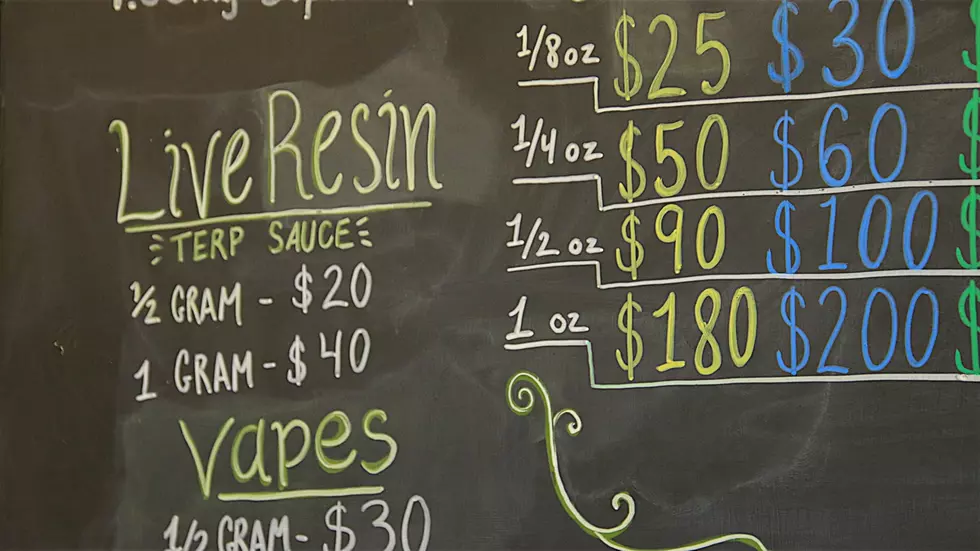 Live Resin
TERP SAUCE
1/2 GRAM - $20
1 GRAM - $40
Vapes
1/2 GRAM - $30
1/8 oz $25 $30 $
1/4 oz $50 $60 $
1/2 oz $90 $100 $
1 oz $180 $200 $